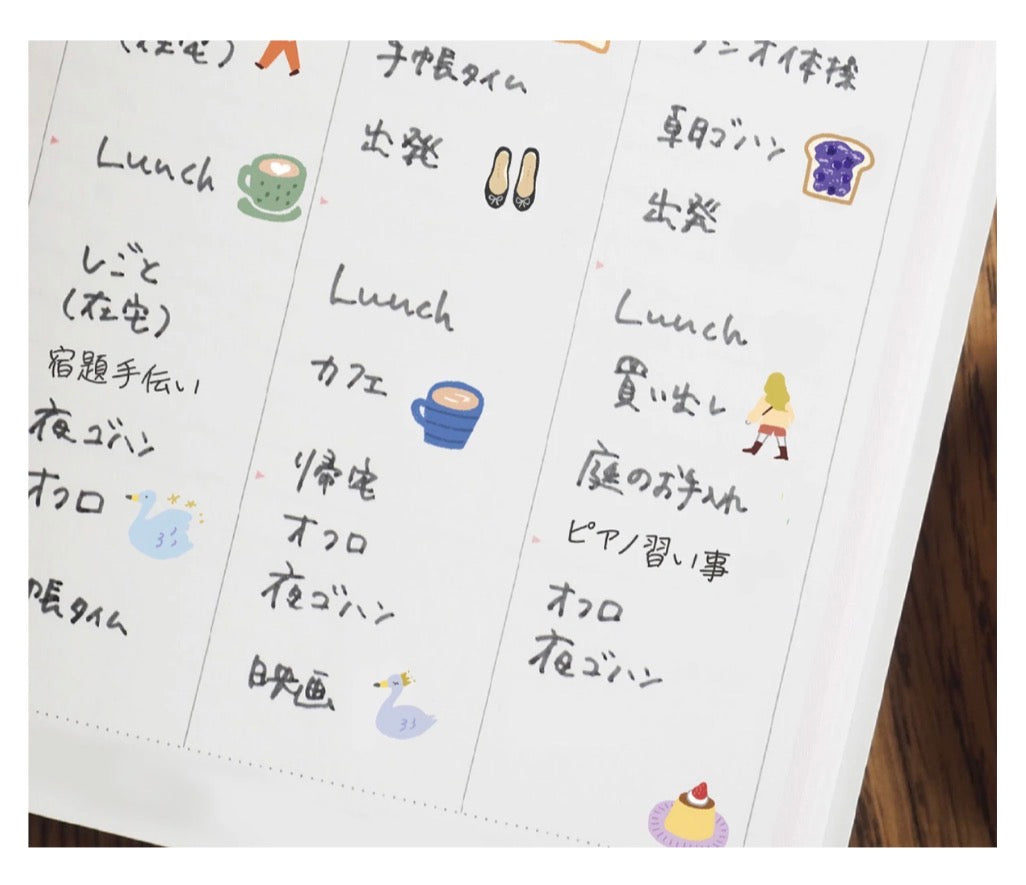 (在宅)
Lunch
しごと
(在宅)
宿題手伝い
夜ゴハン
オフロ
帳タイム
手帳タイム
出発
Lunch
カフェ
帰宅
オフロ
夜ゴハン
映画
ラジオ体操
朝ゴハン
出発
Lunch
買い出し
庭のお手入れ
ピアノ習い事
オフロ
夜ゴハン